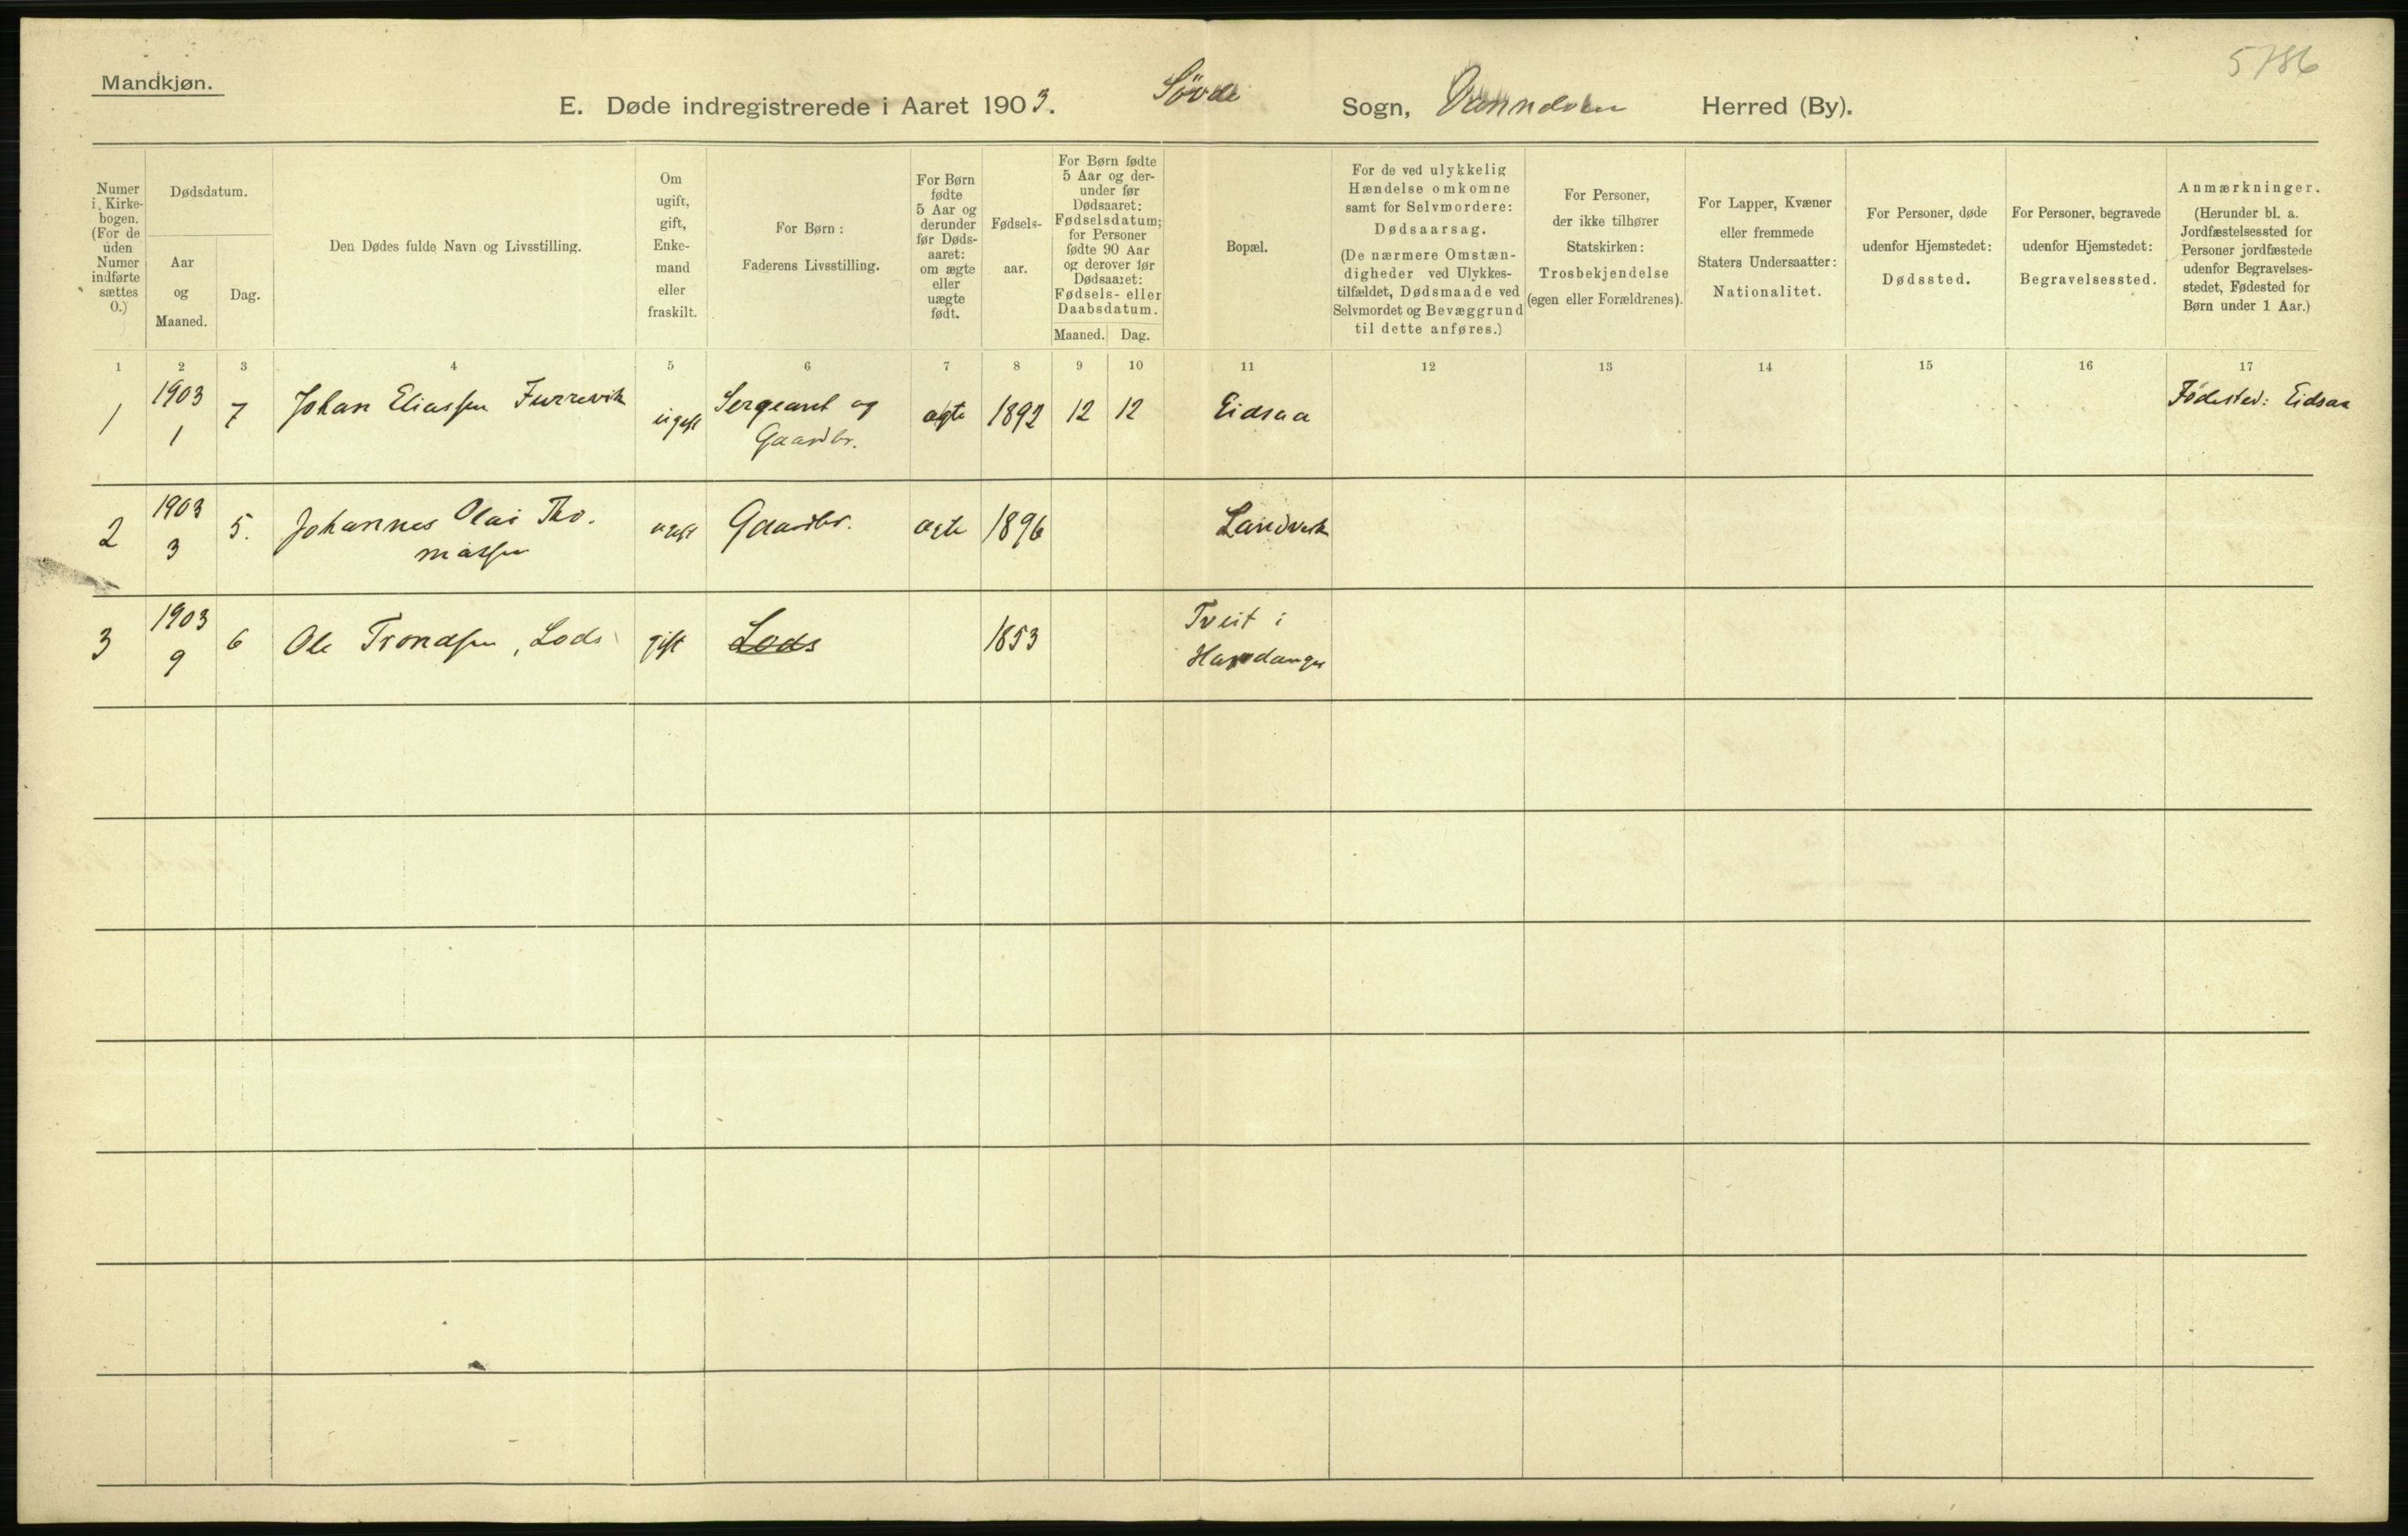 5786
Mandkjøn.
E. Døde indregistrerede i Aaret 1903. Søvde Sogn, Herred (By).
Numer i Kirkebogen. (For de uden Numer indførte sættes 0.)
Dødsdatum.
Aar og Maaned.
Dag.
Den Dødes fulde Navn og Livsstilling.
Om ugift, gift, Enkemand eller fraskilt.
For Børn:
Faderens Livsstilling.
For Børn fødte 5 Aar og derunder før Dødsaaret: om ægte eller uægte født.
Fødselsaar.
For Børn fødte 5 Aar og derunder før Dødsaaret: Fødselsdatum; for Personer fødte 90 Aar og derover før Dødsaaret: Fødsels- eller Daabsdatum.
Maaned. Dag.
Bopæl.
For de ved ulykkelig Hændelse omkomne samt for Selvmordere: Dødsaarsag.
(De nærmere Omstændigheder ved Ulykkestilfældet, Dødsmaade ved Selvmordet og Bevæggrund til dette anføres.)
For Personer, der ikke tilhører Statskirken: Trosbekjendelse (egen eller Forældrenes).
For Lapper, Kvæner eller fremmede Staters Undersaatter: Nationalitet.
For Personer, døde udenfor Hjemstedet: Dødssted.
For Personer, begravede udenfor Hjemstedet: Begravelsessted.
Anmærkninger.
(Herunder bl. a. Jordfæstelsessted for Personer jordfæstede udenfor Begravelsesstedet, Fødested for Børn under 1 Aar.)
1 2 3 4 5 6 7 8 9 10 11 12 13 14 15 16 17
1 1903 1 7 Johan Eliassen Furrevik ugift Sergeant og Gaardbr. ægte 1892 12 12 Eidsaa Fødested: Eidsaa
2 1903 3 5. Johannes Olai Thomassen ugift Gaardbr. ægte 1896 Landvik
3 1903 9 6 Ole Trondsen, Lods gift Lods 1853 Tveit i Hardanger